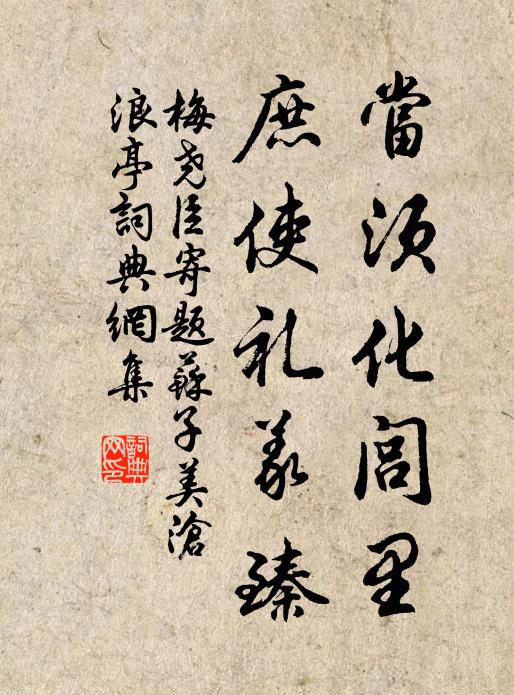 當須化閭里
庶使礼義臻
梅尧臣寄题蘇子美滄
浪亭詞典網集
詞典
网印